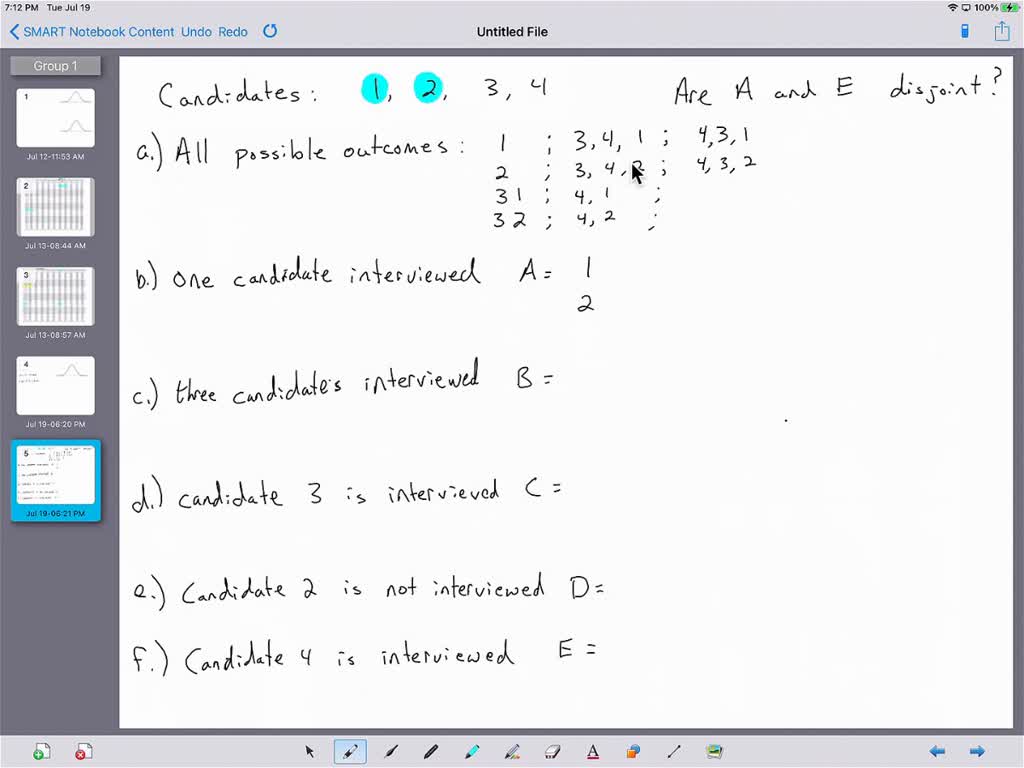 7:12 PM Tue Jul 19 100%
SMART Notebook Content Undo Redo Untitled File
Group 1
1
Jul 12-11:53 AM
2
Jul 13-08:44 AM
3
Jul 13-08:57 AM
4
Jul 19-06:20 PM
5
Jul 19-06:21 PM
Candidates: 1, 2, 3, 4 Are A and E disjoint?
a.) All possible outcomes: 1 ; 3, 4, 1 ; 4, 3, 1
2 ; 3, 4, 2 ; 4, 3, 2
3 1 ; 4, 1 ;
3 2 ; 4, 2 ;
b.) One candidate interviewed A = 1
2
c.) three candidates interviewed B =
d.) candidate 3 is interviewed C =
e.) Candidate 2 is not interviewed D =
f.) Candidate 4 is interviewed E =
A